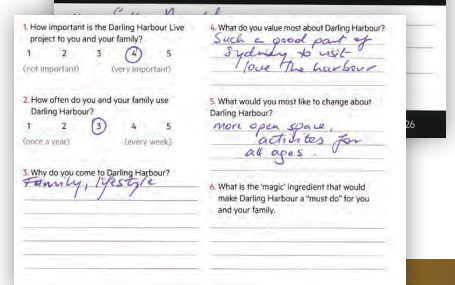 1. How important is the Darling Harbour Live
project to you and your family?
1 2 3 4 5
(not important) (very important)
2. How often do you and your family use
Darling Harbour?
1 2 3 4 5
(once a year) (every week)
3. Why do you come to Darling Harbour?
Family, lifestyle
4. What do you value most about Darling Harbour?
Such a good part of
Sydney to visit
love the harbour
5. What would you most like to change about
Darling Harbour?
more open space,
activites for
all ages.
6. What is the 'magic' ingredient that would
make Darling Harbour a "must do" for you
and your family.
26